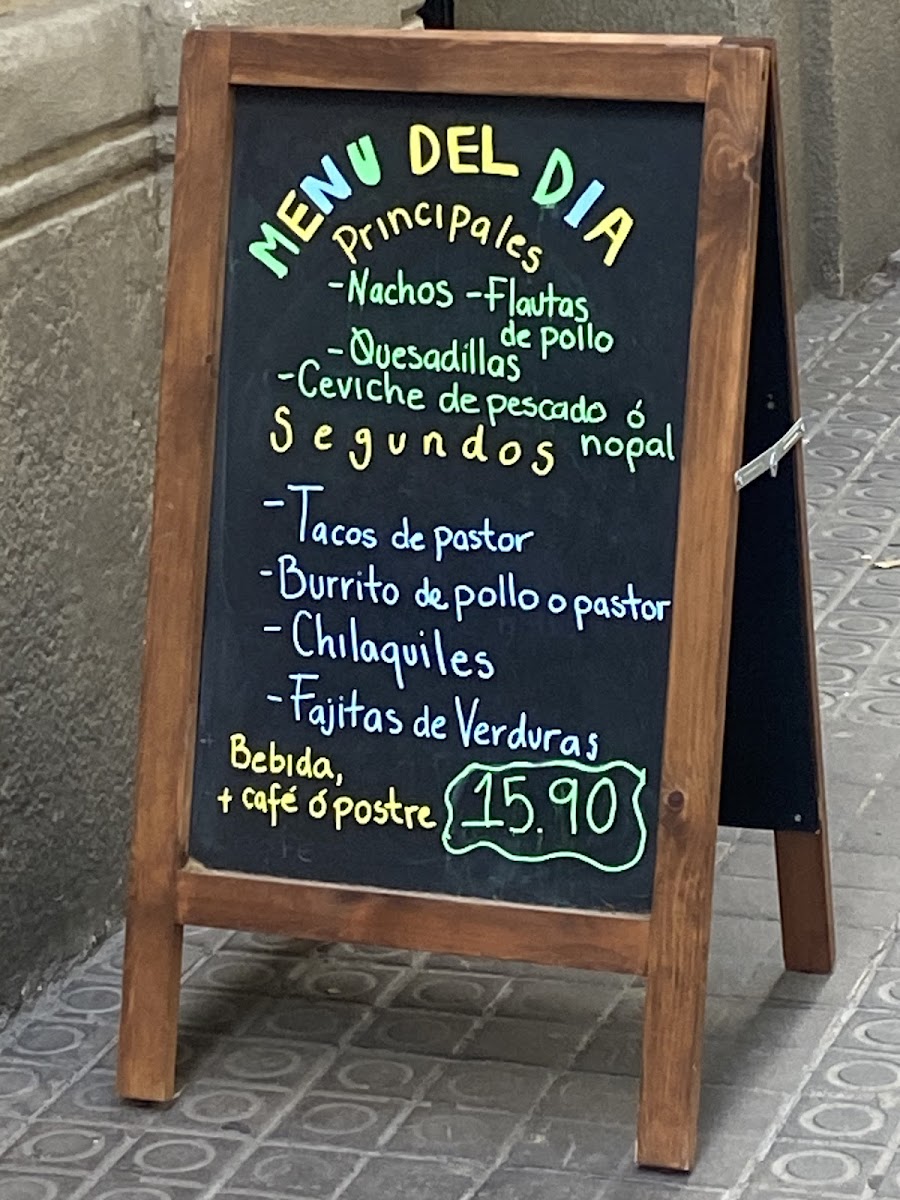 MENU DEL DIA
Principales
-Nachos -Flautas
de pollo
-Quesadillas
-Ceviche de pescado ó
nopal
Segundos
-Tacos de pastor
-Burrito de pollo o pastor
-Chilaquiles
-Fajitas de Verduras
Bebida,
+ café ó postre
15.90